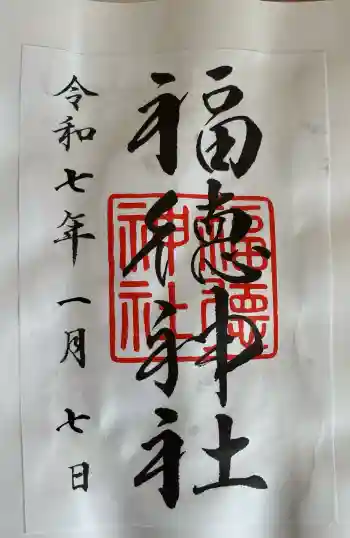 福徳神社
令和七年一月七日
福徳神社